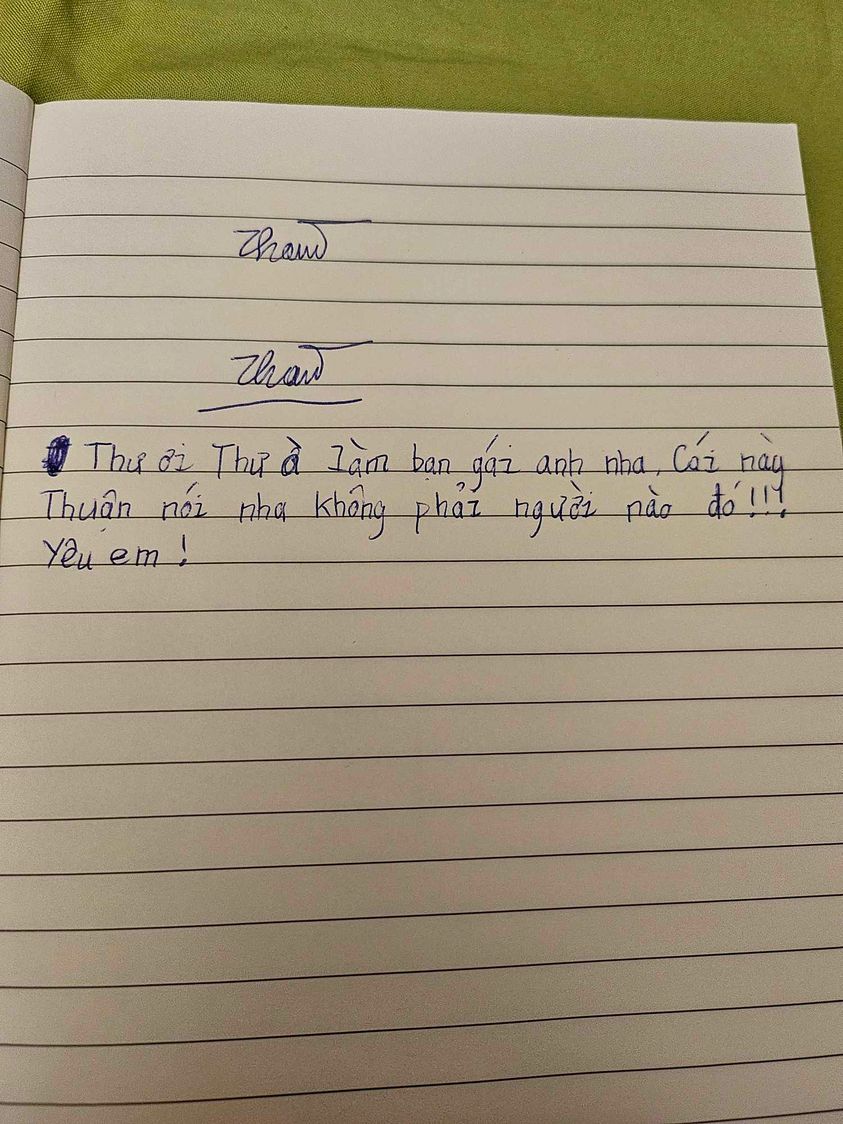 Thư ơi Thư à làm bạn gái anh nha. Cái này
Thuận nói nha không phải người nào đó!!!
Yêu em!